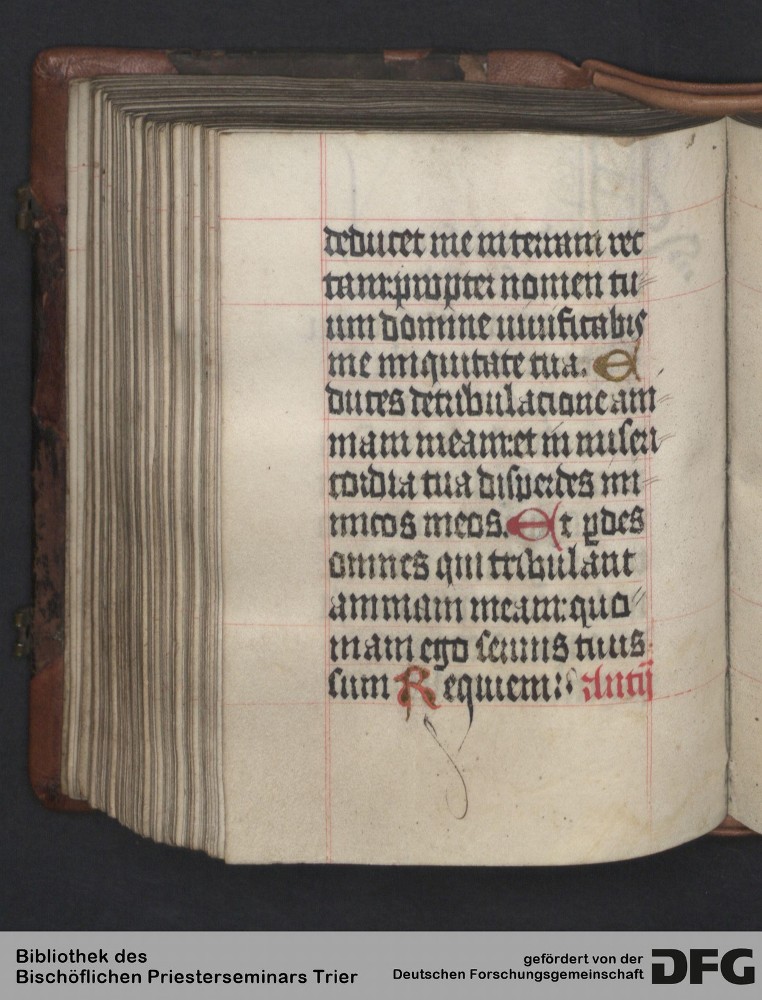 deducet me in terram rec
tam: propter nomen tu
um domine uiuificabis
me in iquitate tua. E
duces de tribulacione ani
mam meam: et in miseri
cordia tua disperdes ini
micos meos. Et ꝑdes
omnes qui tribulant
animam meam: quo
niam ego seruus tuus
sum Requiem: Antiꝭ
Bibliothek des
Bischöflichen Priesterseminars Trier
gefördert von der
Deutschen Forschungsgemeinschaft DFG